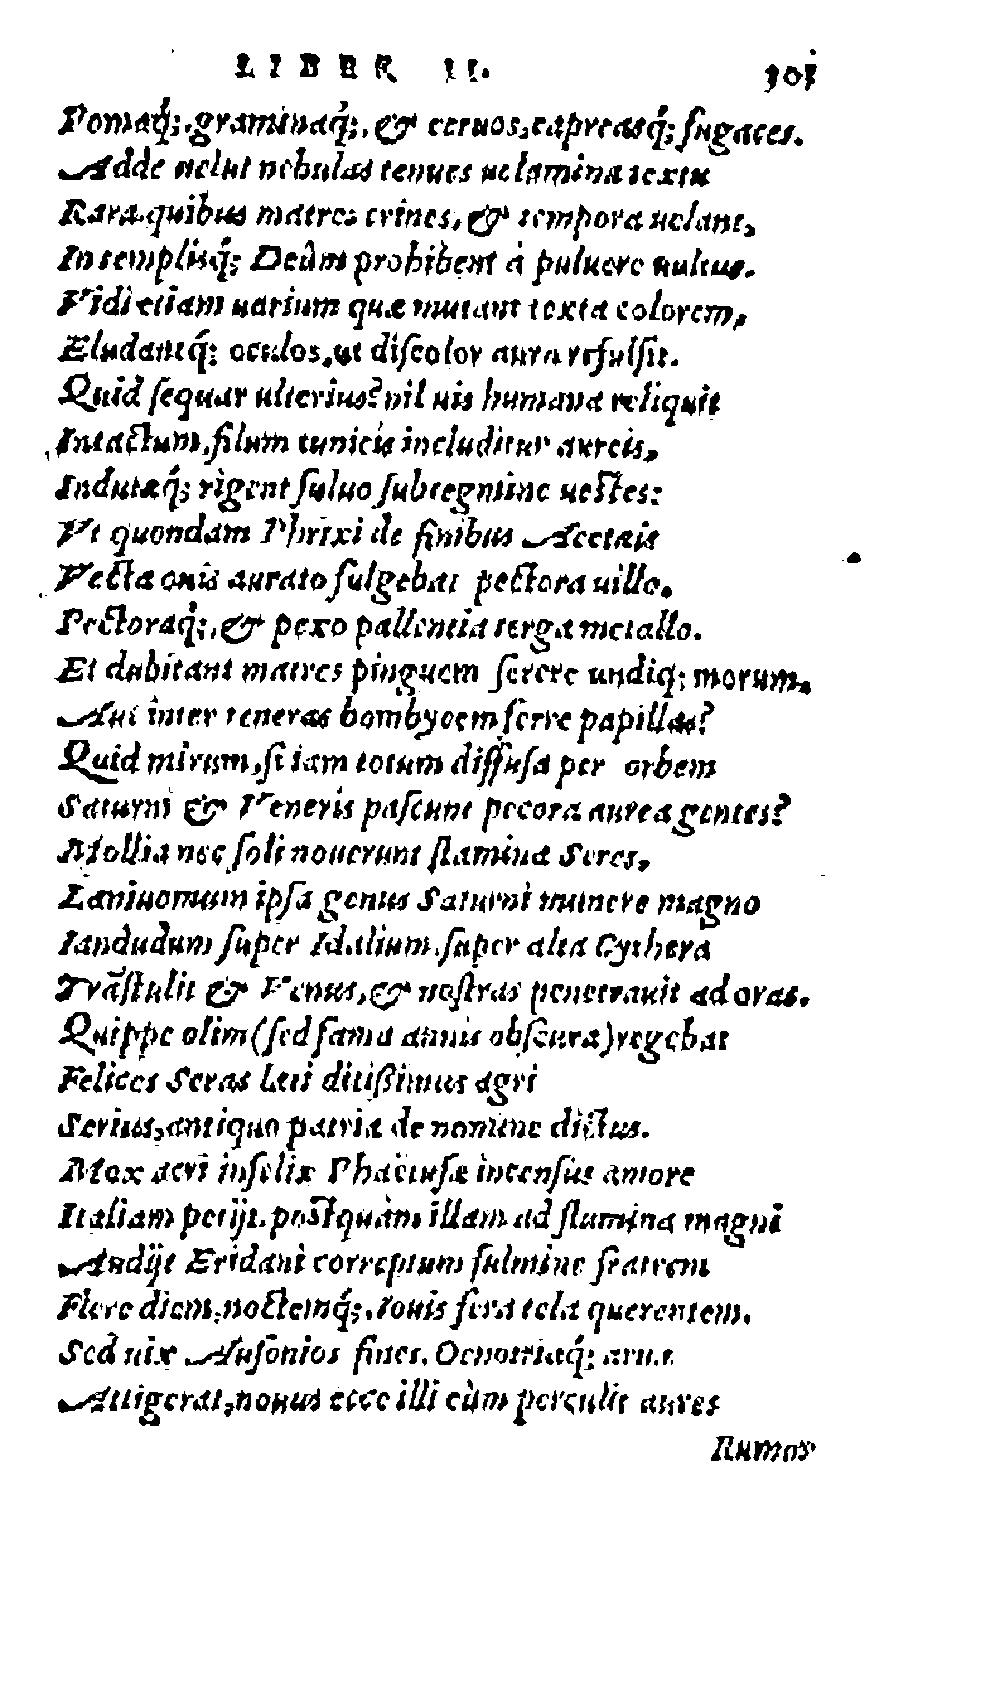 LIBER II. 301
Pomaq́;, graminaq́;, & ceruos, capreasq́; fugaces.
Adde uelut nebulas tenues uelamina textu
Rara, quibus matres crines, & tempora uelant,
In templisq́; Deûm prohibent à puluere uultus.
Vidi etiam uarium quæ mutant texta colorem,
Eludantq́; oculos, ut discolor aura refulsit.
Quid sequar ulterius? nil uis humana reliquit
Intactum, filum tunicis includitur aureis,
Indutæq́; rigent fuluo subtegmine uestes:
Vt quondam Phrixi de finibus Aeetæis
Vecta ouis aurato fulgebat pectora uillo,
Pectoraq́;, & pexo pallentia terga metallo.
Et dubitant matres pinguem serere undiq; morum,
Aut inter teneras bombycem ferre papillas?
Quid mirum, si iam totum diffusa per orbem
Saturni & Veneris pascunt pecora aurea gentes?
Mollia nec soli nouerunt stamina Seres,
Laniuomum ipsa genus Saturni munere magno
Iandudum super Idalium, super alta Cythera
Trãstulit & Venus, & nostras penetrauit ad oras.
Quippe olim (sed fama annis obscura) regebat
Felices Seras læti ditißimus agri
Serius, antiquo patriæ de nomine dictus.
Mox acri infelix Phaëtusæ incensus amore
Italiam petijt, postquàm illam ad flumina magni
Audijt Eridani correptum fulmine fratrem
Flere diem, noctemq́;, Iouis fera tela querentem.
Sed uix Ausonios fines, Oenotriaq́; arua
Attigerat, nouus ecce illi cùm perculit aures
Rumor